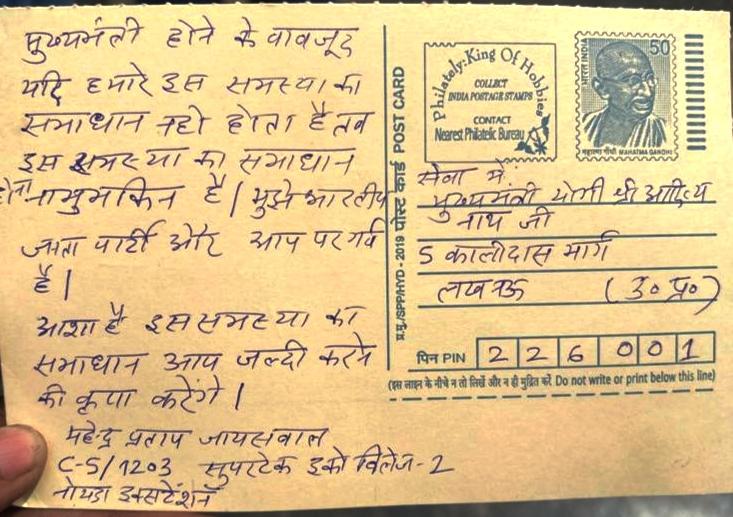 मुख्यमंत्री होने के वावजूद
यदि हमारे इस समस्या का
समाधान नहो होता है तव
इस समस्या का समाधान
होना नामुमकिन है | मुझे भारतीय
जनता पार्टी और आप पर गर्व
है |
आशा है इस समस्या का
समाधान आप जल्दी करने
की कृपा करेंगे |
महेन्द्र प्रताप जायसवाल
C-5/1203 सुपरटेक इको विलेज-2
नोयडा इक्सटेंशन
प्र.मु./SPP/HYD - 2019 पोस्ट कार्ड POST CARD
Philately: King Of Hobbies
COLLECT
INDIA POSTAGE STAMPS
CONTACT
Nearest Philatelic Bureau
भारत INDIA
50
महात्मा गाँधी MAHATMA GANDHI
सेवा में
मुख्यमंत्री योगी श्री आदित्य
नाथ जी
5 कालीदास मार्ग
लखनऊ (उ० प्र०)
पिन PIN 2 2 6 0 0 1
(इस लाइन के नीचे न तो लिखें और न ही मुद्रित करें Do not write or print below this line)